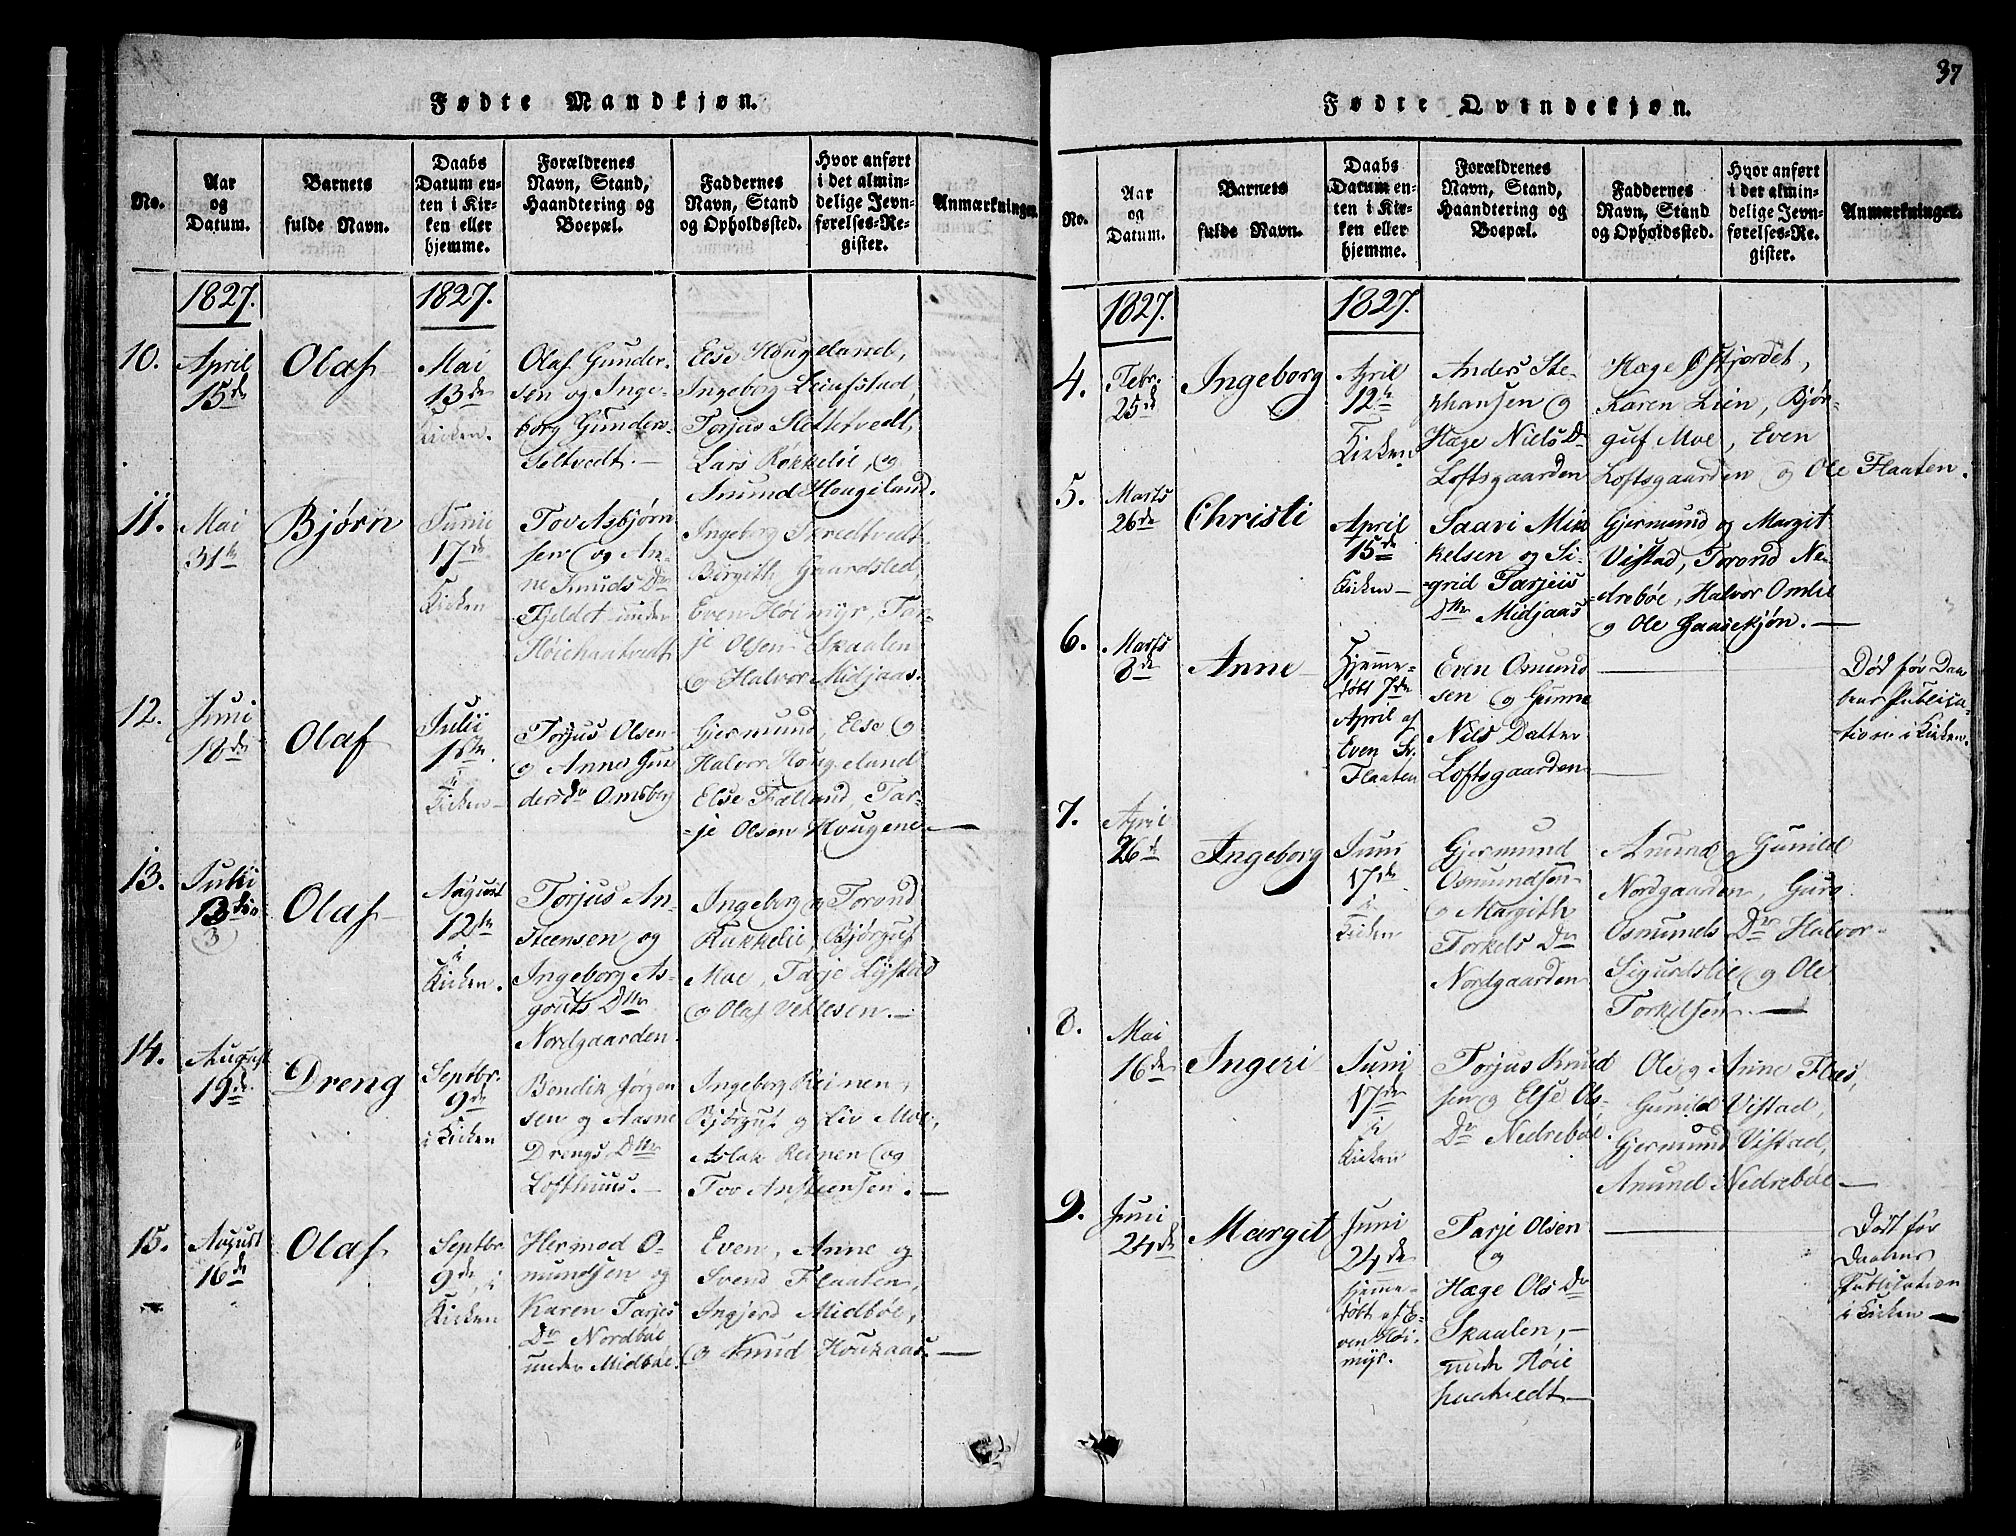 Fødte Mandkjøn.
No.
Aar
og
Datum.
Barnets
fulde Navn.
Daabs
Datum en-
ten i Kir-
ken eller
hjemme.
Forældrenes
Navn, Stand,
Haandtering og
Boepæl.
Faddernes
Navn, Stand
og Opholdssted.
Hvor anført
i det almin-
delige Jevn-
førelses-Re-
gister.
Anmærkninger.
1827.
1827.
10.
April
15de
Olaf
Mai
13de
Kirken.
Olaf Gunder-
sen og Inge-
borg Gunders-
Seltvedt.
Else Hougeland,
Ingeborg Leifstad,
Torjus Slettetvedt,
Lars Røkkelie, og
Anund Hougeland.
11.
Mai
31te
Bjørn
Junii
17de
Kirken
Tov Asbjørn
sen og An-
ne Knuds Dr
Fjeldet under
Høiehaatvedt
Ingeborg Skredtvedt
Birgith Gaardsted,
Even Høimyr, Tar-
je Olsen Skaalen
og Halvor Midjaas.
12.
Juni
18de
Olaf
Julii
15te
i
Kirken
Torjus Olsen
og Anne Gun
dersdr Omsberg
Gjermund, Else og
Halvor Hougeland
Else Fælland, Tar-
je Olsen Hougene
13.
Julii
13de
3
Olaf
August
12te
i
Kirken.
Torjus An-
steensen og
Ingeborg As-
gouts Dtr
Nordgaarden.
Ingeborg og Torond
Rukkelie, Bjørguf
Moe, Tarje Lystad
og Olaf Vetlesen.
14.
August
19de
Dreng
Septbr.
9de
i Kirken
Bendix Jørgen
sen og Aasne
Drengs Dtr
Lofthuus.
Ingeborg Reinen,
Bjørguf og Liv Moe,
Aslak Reinen og
Tov Ansteensen.
15.
August
16de
Olaf
Septbr
9de, i
Kirken
Hermod O-
mundsen og
Karen Tarjes
Dr Nordbøe
under Midbøe.
Even, Anne og
Svend Flaaten,
Ingjerd Midbøe,
og Knud Houkaas.
37
Fødte Qvindekjøn.
No.
Aar
og
Datum.
Barnets
fulde Navn.
Daabs
Datum en-
ten i Kir-
ken eller
hjemme.
Forældrenes
Navn, Stand,
Haandtering og
Boepæl.
Faddernes
Navn, Stand
og Opholdssted.
Hvor anført
i det almin-
delige Jevn-
førelses-Re-
gister.
Anmærkninger.
1827.
1827.
4.
Febr.
25de
Ingeborg
April
12te
Kirken
Anders Ste-
phansen og
Hæge Niels Dr
Loftsgaarden
Hæge Østjordet,
Karen Lien, Bjør-
guf Moe, Even
Loftsgaarden og Ole Flaaten.
5.
Marts
26de
Christi
April
15de
Kirken
Saavi Mik
kelsen og Si-
grid Tarjeis
Dtr Midjaas
Gjermund og Margit
Vistad, Torond Ne-
drebøe, Halvor Omlie
og Ole Gaasekjøn.
6.
Marts
8de
Anne
Hjemme-
døbt 7de
April af
Even Sv.
Flaaten
Even Osmund
sen og Gunne
Nils Datter
Loftsgaarden
Død før Daa-
bens Publica-
tion i Kirken.
7.
April
26de
Ingeborg
Juni
17de
i
Kirken
Gjermund
Osmundsen
og Margith
Torkels Dr
Nordgaarden
Anund og Gunild
Nordgaarden, Guro
Osmunds Dr Halvor
Sigurdslie og Ole
Torkelsen.
8.
Mai
16de
Ingeri
Juni
17de
i
Kirken
Torjus Knud
sen og Else Ols
Dr Nedrebøe.
Ole og Anne Flaas,
Gunild Vistad,
Gjermund Vistad,
Anund Nedrebøe
9.
Juni
24de
Margit
Juni
24de
hjemme-
døbt af E-
ven Høi-
myr.
Tarje Olsen
og
Hæge Ols Dr
Skaalen,
under Høie
haatvedt
Død før
Daabens
Publication
i Kirken